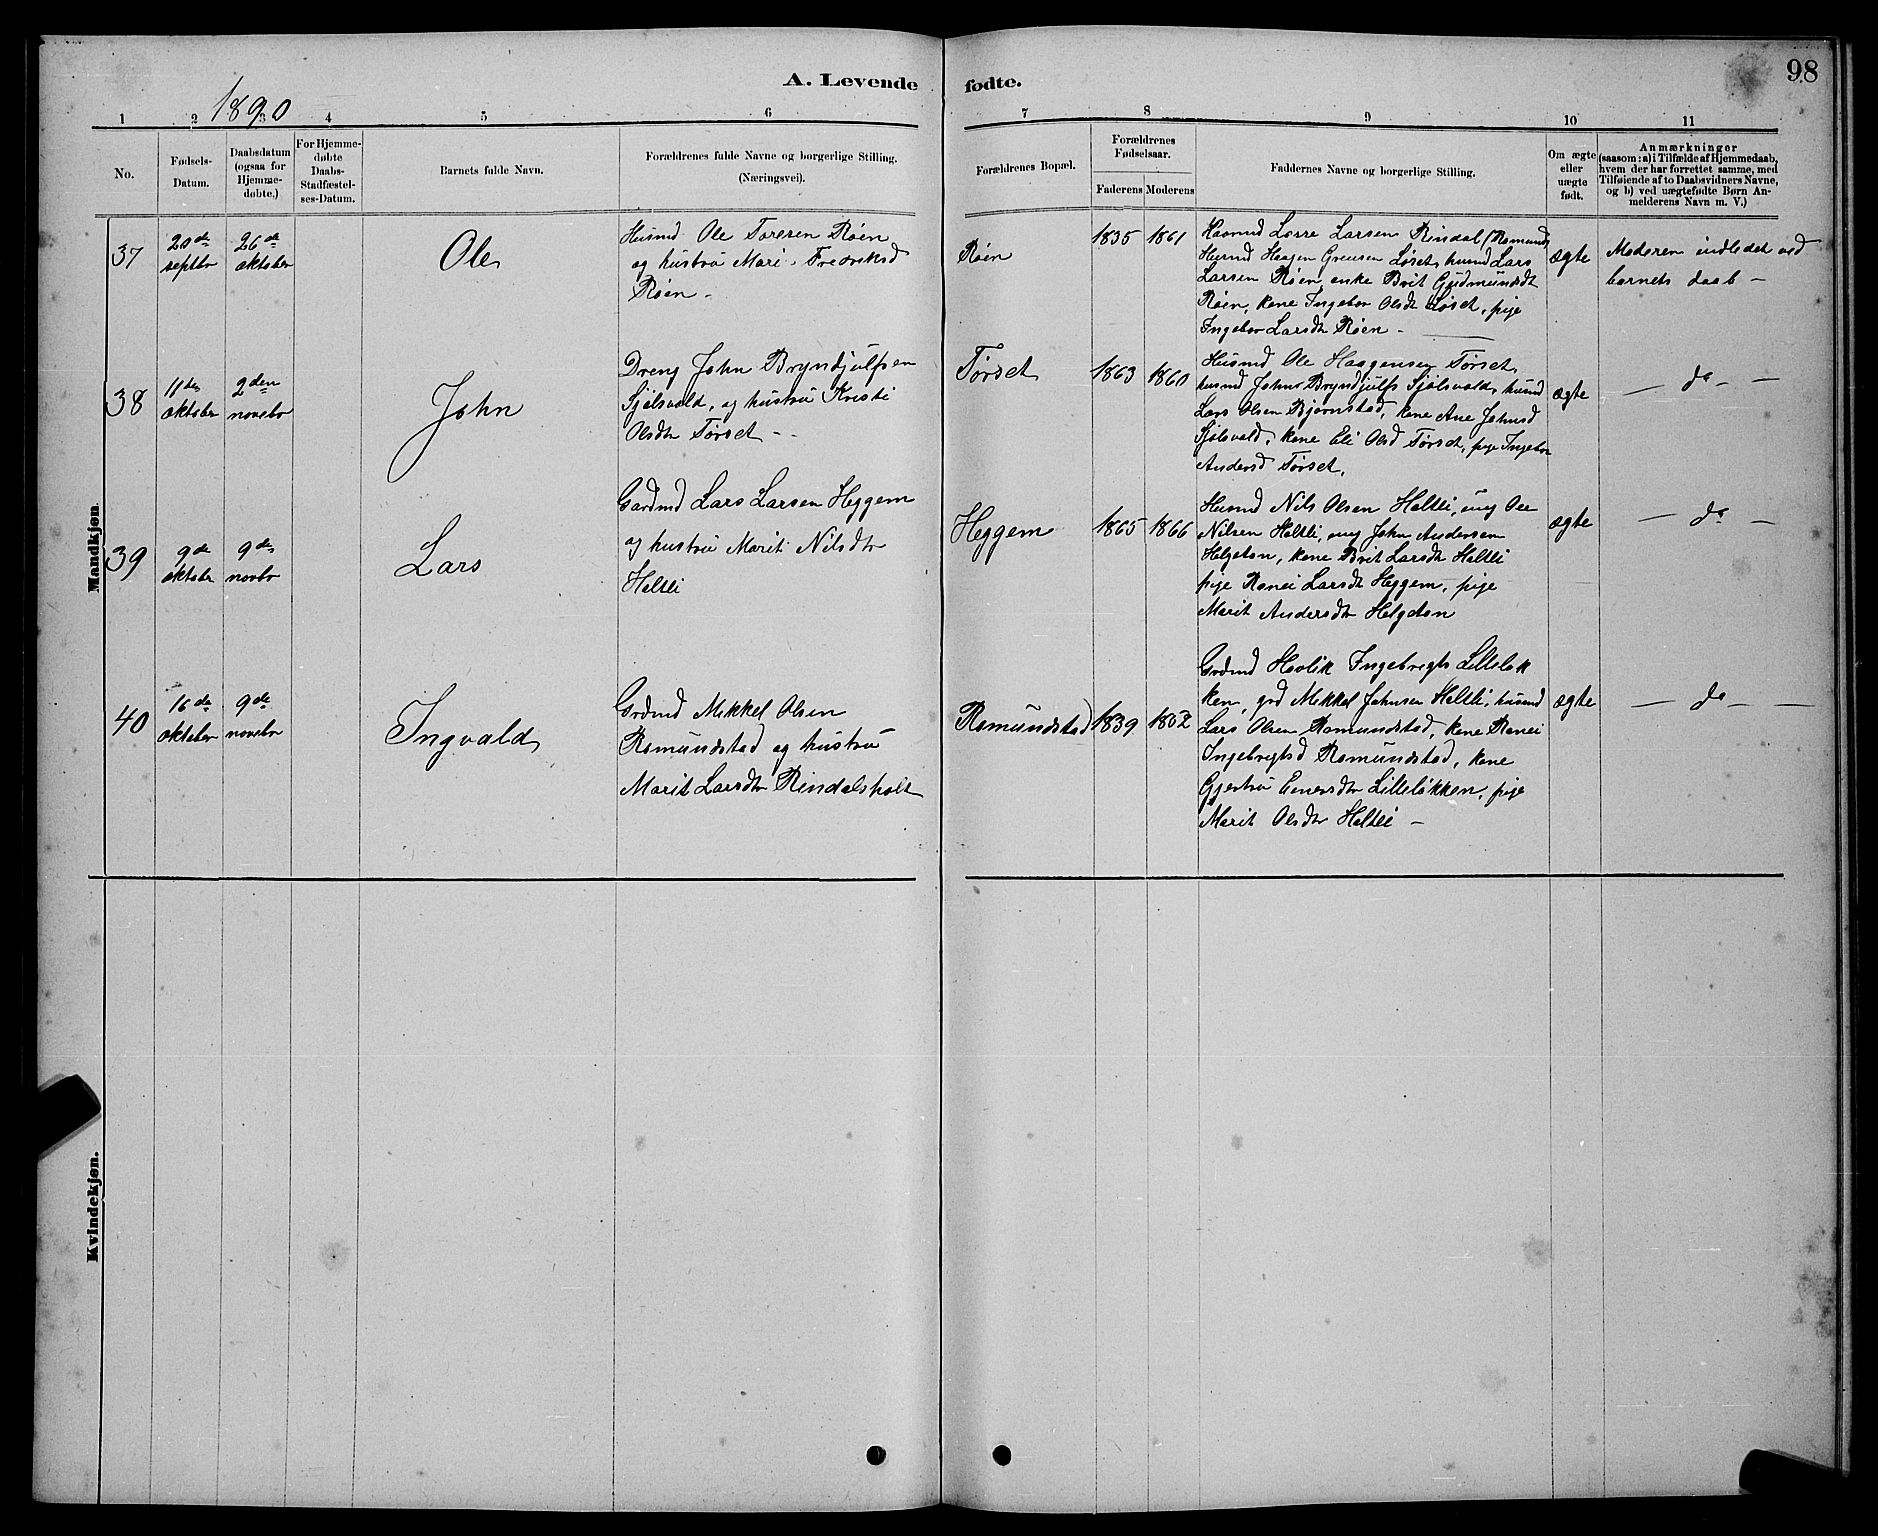 98
A. Levende fødte.
1890
1 2 3 4 5 6 7 8 9 10 11
No.
Fødsels-
Datum.
Daabsdatum
(ogsaa for
Hjemme-
døbte.)
For Hjemme-
døbte
Daabs-
Stadfæstel-
ses-Datum.
Barnets fulde Navn.
Forældrenes fulde Navne og borgerlige Stilling.
(Næringsvei).
Forældrenes Bopæl.
Forældrenes
Fødselsaar.
Faderens Moderens
Faddernes Navne og borgerlige Stilling.
Om ægte
eller
uægte
født.
Anmærkninger
(saasom: a) i Tilfælde af Hjemmedaab,
hvem der har forrettet samme, med
Tilføiende af to Daabsvidners Navne,
og b) ved uægtefødte Børn An-
melderens Navn m. V.)
Mandkjøn.
37
20de
septbr
26de
oktober
Ole
Husmd Ole Toresen Røen
og hustru Mari Fredriksd
Røen -
Røen
1835 1861
Larsen Rindal (Romund)
Husmd Haagen Løset, husmd Lars
Larsen Røen, enke Brit Gudmundsdt
Røen, kone Ingebor Olsdt Løset, pige
Ingebor Larsdt Røen -
ægte
Moderen indledet ved
barnets daab -
38
11de
oktober
2den
novebr
John
Dreng John Bryndjulfsen
Sjølsvold, og hustru Kristi
Olsdtr Tørset -
Tørset
1863 1860
Husmd Ole Haagensen Tørset,
husmd John Bryndjulfs Sjølsvold, husmd
Lars Olsen Bjørnstad, kone Ane Johnsd
Sjølsvold, kone Eli Olsd Tørset, pige Ingebor
Andersd Tørset.
ægte
- do - -
39
9de
oktober
9de
novbr
Lars
Gardmd Lars Larsen Heggem
og hustru Marit Nilsdtr
Holtli
Heggem
1865 1866
Husmd Nils Olsen Holtli, ung Ole
Nilsen Holtli, ung John Andersen
Helgeton, kone Brit Larsdt Holtli
pige Ranei Larsdt Heggem, pige
Marit Andersdtr Helgeton
ægte
- do -
40
16de
oktober
9de
novebr
Ingvald
Grdmd Mikkel Olsen
Romundstad og hustru
Marit Larsdtr Rindalsholt
Romundstad
1839 1852
Grdmd Hovlik Ingebrigts Lilleløk
ken, grd Mikkel Johnsen Holtli, husmd
Lars Olsen Romundstad, kone Ranei
Ingebrigtsd Romundstad, kone
Gjertru Enersdtr Lilleløkken, pige
Marit Olsdtr Holtli -
ægte
- do - -
Kvindekjøn.